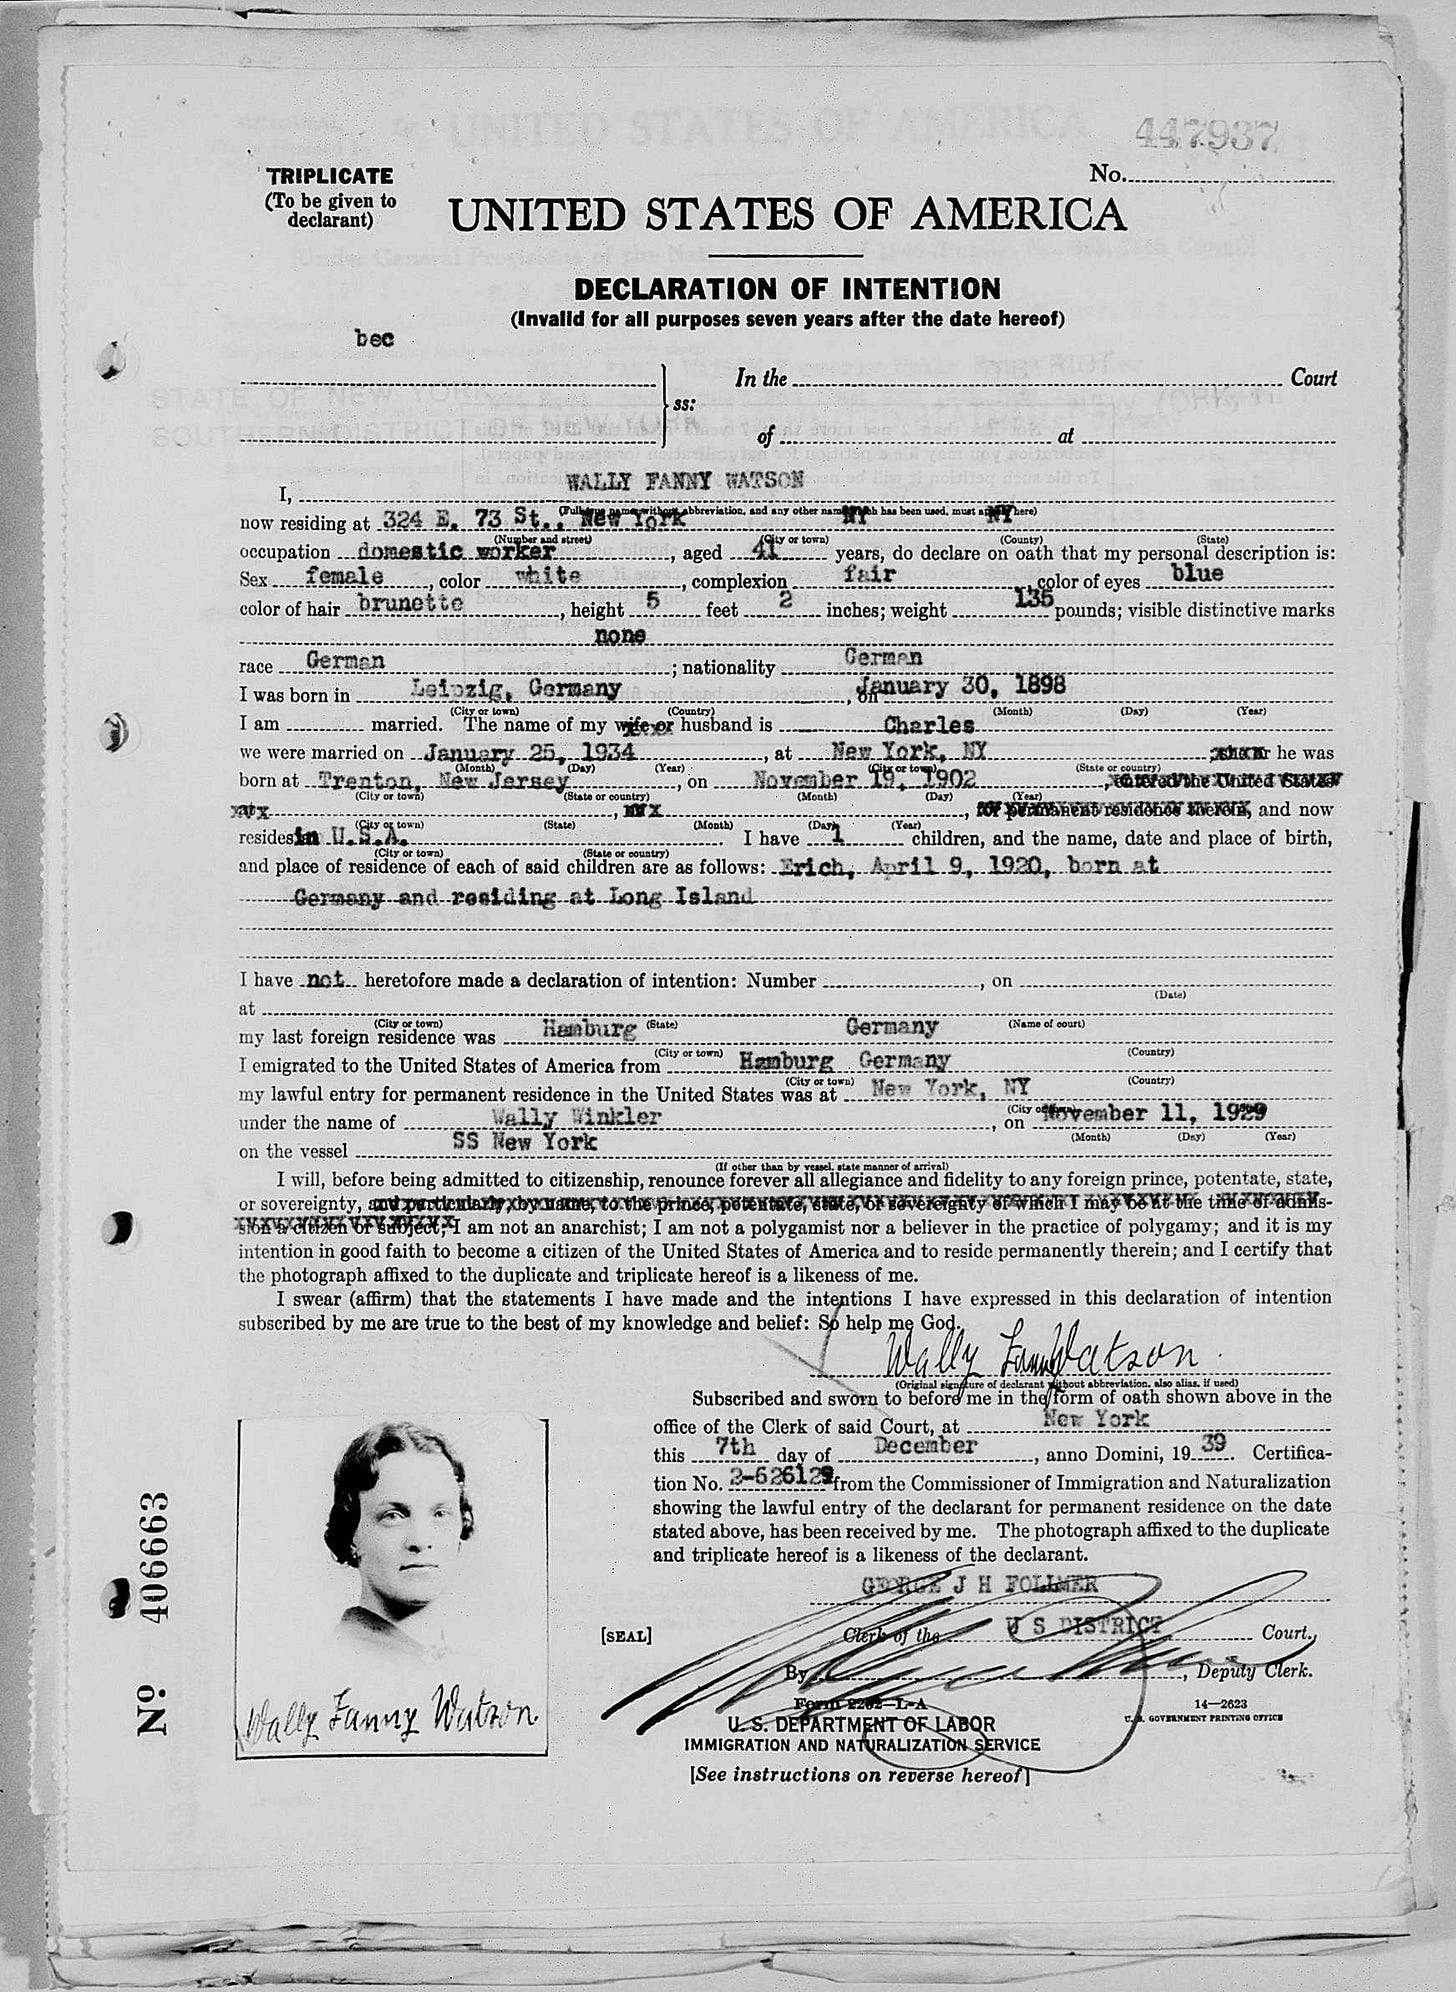 447937
TRIPLICATE
(To be given to
declarant)
No.
UNITED STATES OF AMERICA
DECLARATION OF INTENTION
(Invalid for all purposes seven years after the date hereof)
bec
In the Court
ss:
STATE OF NEW YORK
SOUTHERN DISTRICT OF NEW YORK
of at
I, WALLY FANNY WATSON
(Full true name, without abbreviation, and any other name which has been used, must appear here)
now residing at 324 E. 73 St., New York NY NY
(Number and street) (City or town) (County) (State)
occupation domestic worker, aged 41 years, do declare on oath that my personal description is:
Sex female, color white, complexion fair, color of eyes blue
color of hair brunette, height 5 feet 2 inches; weight 135 pounds; visible distinctive marks
none
race German; nationality German
I was born in Leipzig, Germany, on January 30, 1898
(City or town) (Country) (Month) (Day) (Year)
I am married. The name of my wife or husband is Charles
we were married on January 25, 1934, at New York, NY; she or he was
(Month) (Day) (Year) (City or town) (State or country)
born at Trenton, New Jersey, on November 19, 1902, entered the United States
(City or town) (State or country) (Month) (Day) (Year)
at, on, for permanent residence therein, and now
(City or town) (State) (Month) (Day) (Year)
resides in U.S.A. I have 1 children, and the name, date and place of birth,
(City or town) (State or country)
and place of residence of each of said children are as follows: Erich, April 9, 1920, born at
Germany and residing at Long Island
I have not heretofore made a declaration of intention: Number, on
(Date)
at
(City or town) (State) (Name of court)
my last foreign residence was Hamburg Germany
(City or town) (Country)
I emigrated to the United States of America from Hamburg Germany
(City or town) (Country)
my lawful entry for permanent residence in the United States was at New York, NY
(City or town)
under the name of Wally Winkler, on November 11, 1929
(Month) (Day) (Year)
on the vessel SS New York
(If other than by vessel, state manner of arrival)
I will, before being admitted to citizenship, renounce forever all allegiance and fidelity to any foreign prince, potentate, state,
or sovereignty, and particularly, by name, to the prince, potentate, state, or sovereignty of which I may be at the time of admis-
sion a citizen or subject; I am not an anarchist; I am not a polygamist nor a believer in the practice of polygamy; and it is my
intention in good faith to become a citizen of the United States of America and to reside permanently therein; and I certify that
the photograph affixed to the duplicate and triplicate hereof is a likeness of me.
I swear (affirm) that the statements I have made and the intentions I have expressed in this declaration of intention
subscribed by me are true to the best of my knowledge and belief: So help me God.
Wally Fanny Watson
(Original signature of declarant without abbreviation, also alias, if used)
Subscribed and sworn to before me in the form of oath shown above in the
office of the Clerk of said Court, at New York
this 7th day of December, anno Domini, 1939. Certifica-
tion No. 2-626129 from the Commissioner of Immigration and Naturalization
showing the lawful entry of the declarant for permanent residence on the date
stated above, has been received by me. The photograph affixed to the duplicate
and triplicate hereof is a likeness of the declarant.
GEORGE J H FOLLMER
[SEAL]
Clerk of the U S DISTRICT Court.
By, Deputy Clerk.
Form 2202-L-A
14—2623
U. S. GOVERNMENT PRINTING OFFICE
U. S. DEPARTMENT OF LABOR
IMMIGRATION AND NATURALIZATION SERVICE
[See instructions on reverse hereof]
Wally Fanny Watson
No 406663